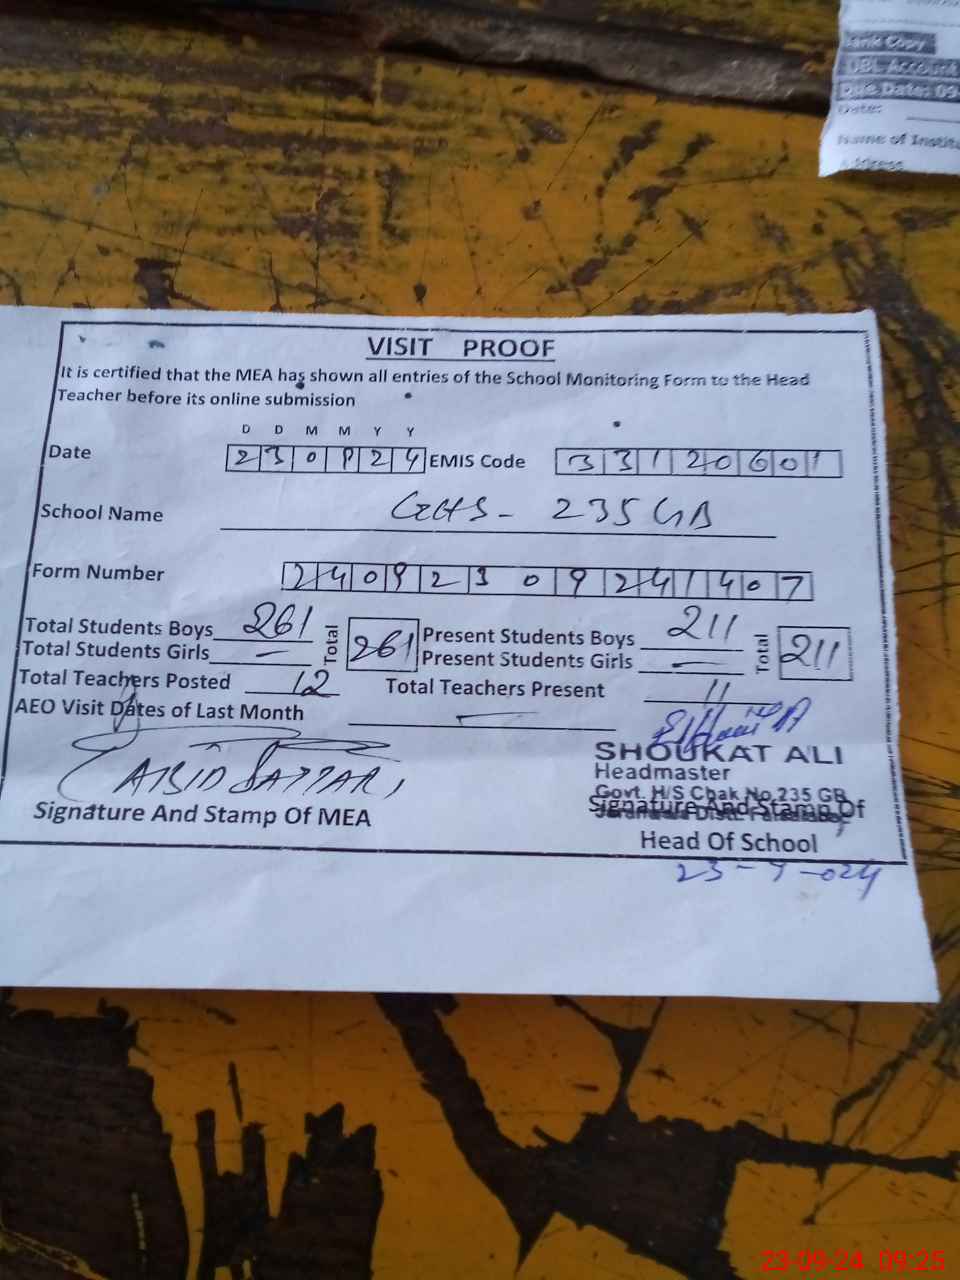 Bank Copy
UBL Account
Due Date: 09-
Date:
Name of Institu
Address
VISIT PROOF
It is certified that the MEA has shown all entries of the School Monitoring Form to the Head
Teacher before its online submission
D D M M Y Y
Date 23 09 24 EMIS Code 33120601
School Name GHS - 235 GB
Form Number 24092309241407
Total Students Boys 261 Total 261 Present Students Boys 211 Total 211
Total Students Girls — Present Students Girls —
Total Teachers Posted 12 Total Teachers Present 11
AEO Visit Dates of Last Month —
ABID SATTAR
SHOUKAT ALI
Headmaster
Govt. H/S Chak No.235 GB
Signature And Stamp Of MEA Signature And Stamp Of
Head Of School
23-9-024
23-09-24 09:25